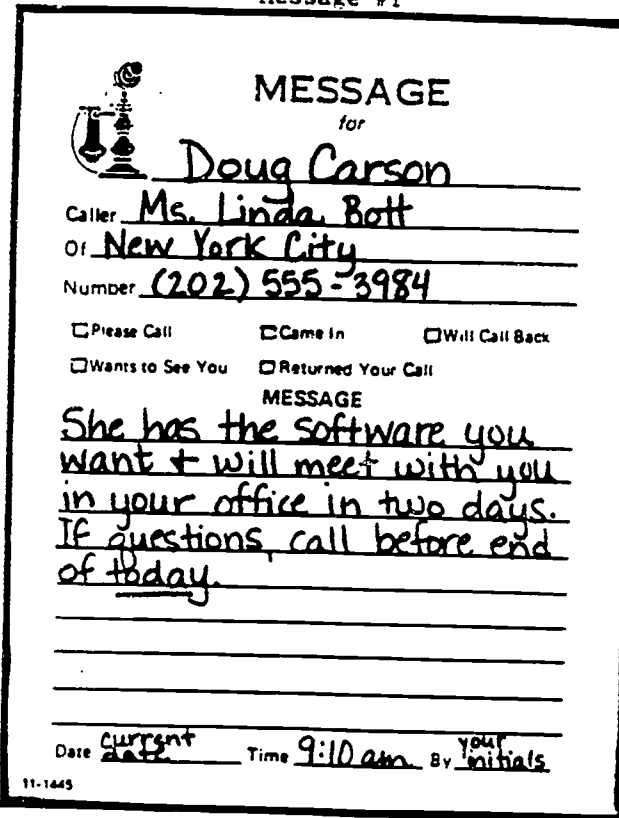 Message #1
MESSAGE
for
Doug Carson
Caller Ms. Linda Bott
Of New York City
Number (202) 555-3984
Please Call Came In Will Call Back
Wants to See You Returned Your Call
MESSAGE
She has the software you
want + will meet with you
in your office in two days.
If questions, call before end
of today.
Date current date Time 9:10 am By your initials
11-1445